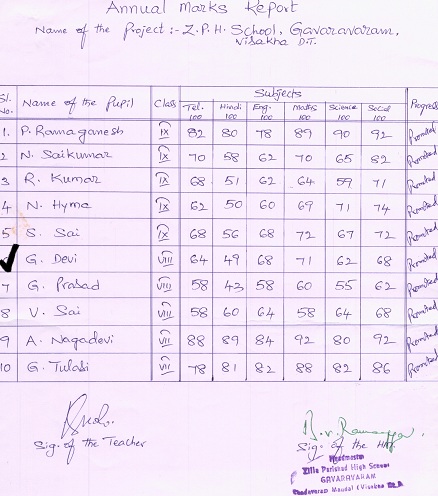 Annual Marks Report
Name of the Project :- Z.P.H. School, Gavaravaram,
Visakha D.T.
Subjects
Sl. No. Name of the Pupil Class Tel. 100 Hindi 100 Eng. 100 Maths 100 Science 100 Social 100 Progress
1. P. Ramaganesh IX 82 80 78 89 90 92 Promoted
2 N. Saikumar IX 70 58 62 70 65 82 Promoted
3 R. Kumar IX 68 51 62 64 59 71 Promoted
4 N. Hyma IX 62 50 60 69 71 74 Promoted
5 S. Sai IX 68 56 68 72 67 72 Promoted
G. Devi VIII 64 49 68 71 62 68 Promoted
7 G. Prasad VIII 58 43 58 60 55 62 Promoted
8 V. Sai VIII 58 60 64 58 64 68 Promoted
9 A. Nagadevi VII 88 89 84 92 80 92 Promoted
10 G. Tulasi VII 78 81 82 88 82 86 Promoted
Sig. of the Teacher
Sig. of the HM
Headmaster
Zilla Parishad High School
GAVARAVARAM
Mandal (Visakha Dt.)